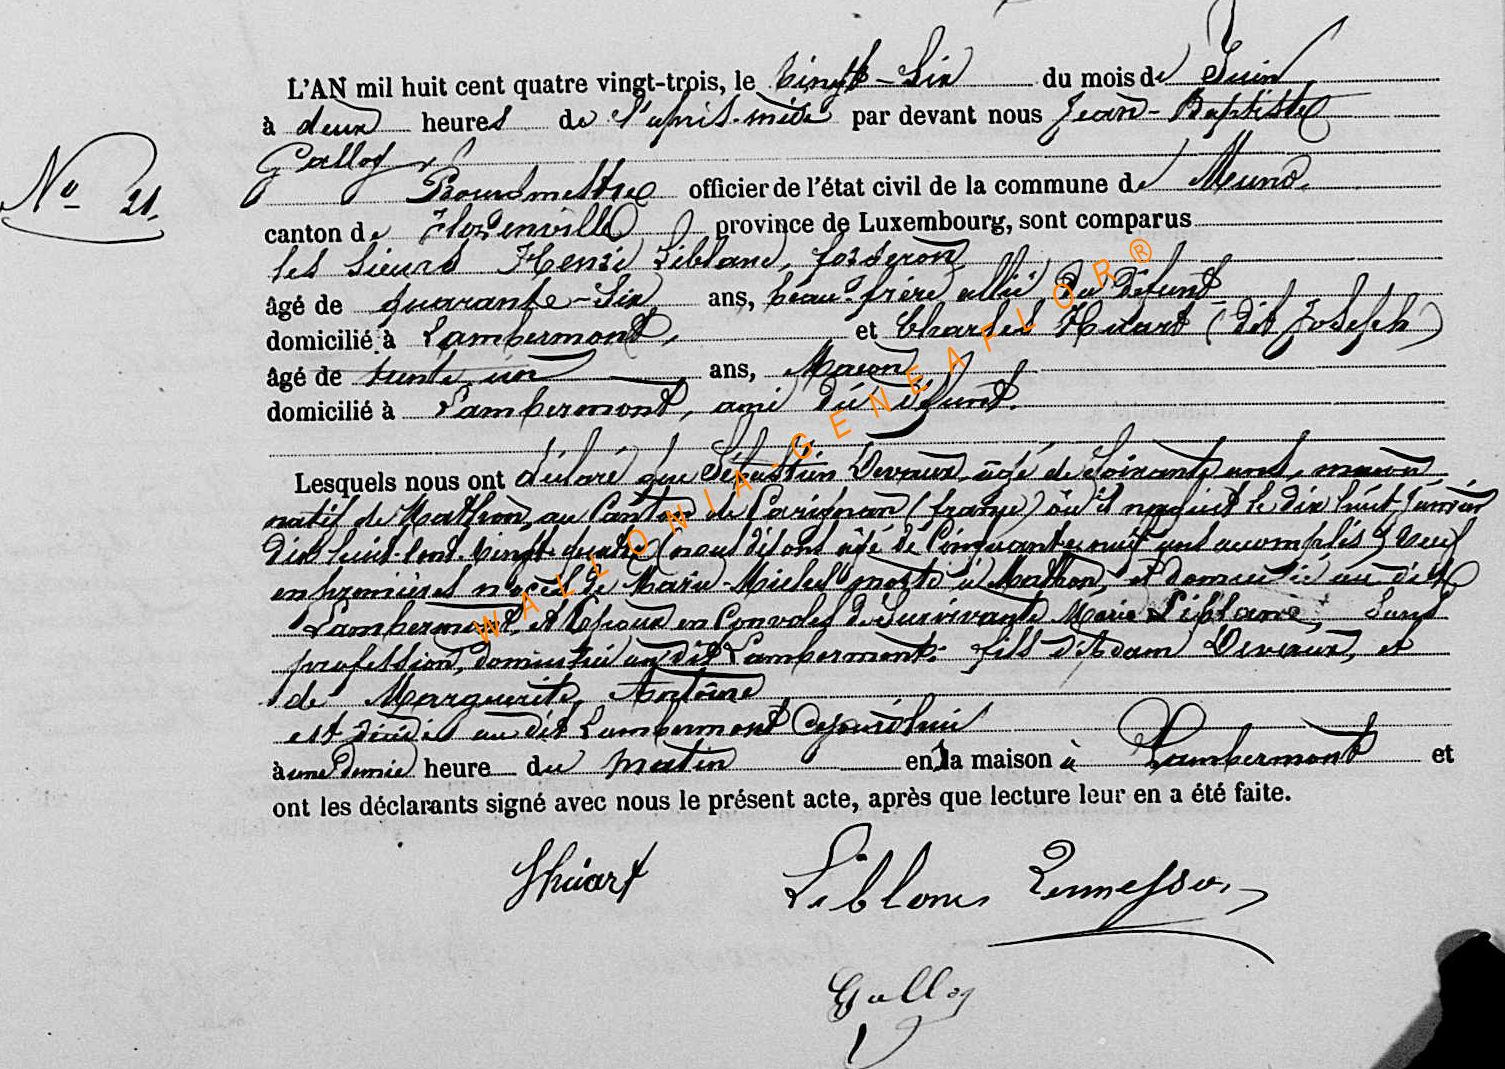 L'AN mil huit cent quatre vingt-trois, le vingt-Six du mois de Juin
à deux heures de l'après-midi par devant nous Jean-Baptiste
Nº 21.
Galloy
Bourgmestre officier de l'état civil de la commune de Muno,
canton de Florenville province de Luxembourg, sont comparus
les sieurs Henri Leblanc, forgeron,
âgé de quarante-Six ans, beau-frère allié du défunt
domicilié à Lambermont, et Charles Huart (dit Joseph)
âgé de trente un ans, Maçon
domicilié à Lambermont, ami du défunt.
Lesquels nous ont déclaré que Sébastien Devaux, âgé de Soixante ans, maçon
natif de Mathon, au Canton de Carignan (france) où il naquit le dix huit Janvier
dix huit-Cent-vingt-quatre (nous disons âgé de Cinquante neuf ans accomplis) Veuf
en premières noces de Marie Michel morte à Mathon, et domicilié au dit
Lambermont, et Epoux en Convoles de Survivante Marie Leblanc, Sans
profession, domiciliée au dit Lambermont; fils d'Adam Devaux, et
de Marguerite Antoine
est décédé au dit Lambermont Cejourd'hui
à une demie heure du matin en la maison à Lambermont et
ont les déclarants signé avec nous le présent acte, après que lecture leur en a été faite.
JHuart Leblanc
Galloy
WALLONIA-GENEAFLOR®